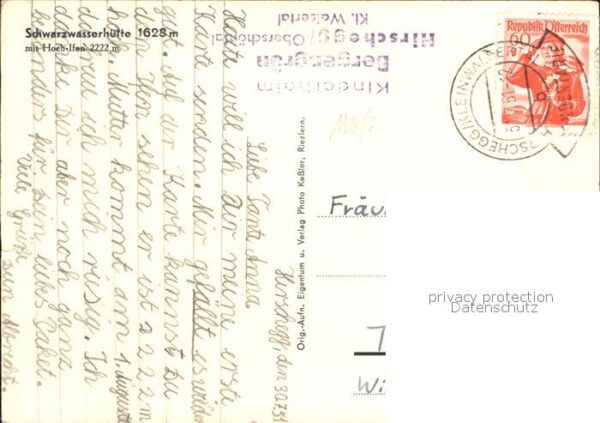 Schwarzwasserhütte 1628 m
mit Hoch-Ifen 2222 m
Kinderheim
Bergengrün
Hirschegg/Oberschöntal
Kl. Walsertal
118/2
Republik Österreich
60
HIRSCHEGG (KLEINWALSERTAL)
Hirschegg, den 30.7.51
Liebe Tante Anna
Heute will ich Dir meine erste
Karte senden. Mir gefällt es
gut. Auf der Karte kannst Du
den Ifen sehen er ist 2222 m
Mutter kommt am 1. August
darau ich mich riesig. Ich
danke Dir aber noch ganz
besonders für Dein liebes Paket.
Viele Grüße
Dein Albrecht.
Orig.-Aufn. Eigentum u. Verlag Photo Keßler, Riezlern.
Fräu
Wi
privacy protection
Datenschutz